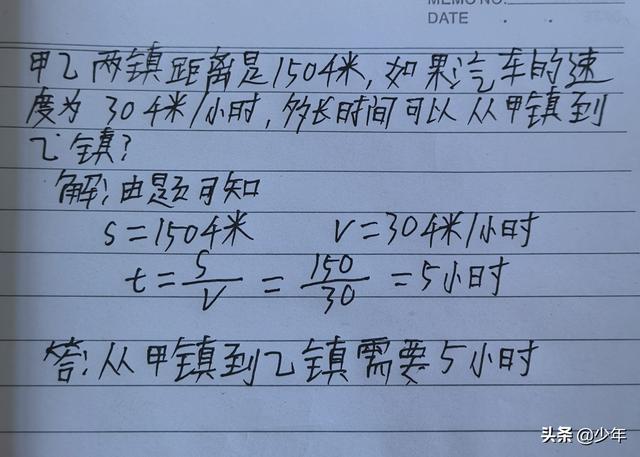 MEMO NO.
DATE . .
甲乙两镇距离是150千米,如果汽车的速
度为30千米/小时,多长时间可以从甲镇到
乙镇?
解:由题可知
s=150千米 v=30千米/小时
t=S/V=150/30=5小时
答:从甲镇到乙镇需要5小时
头条@少年